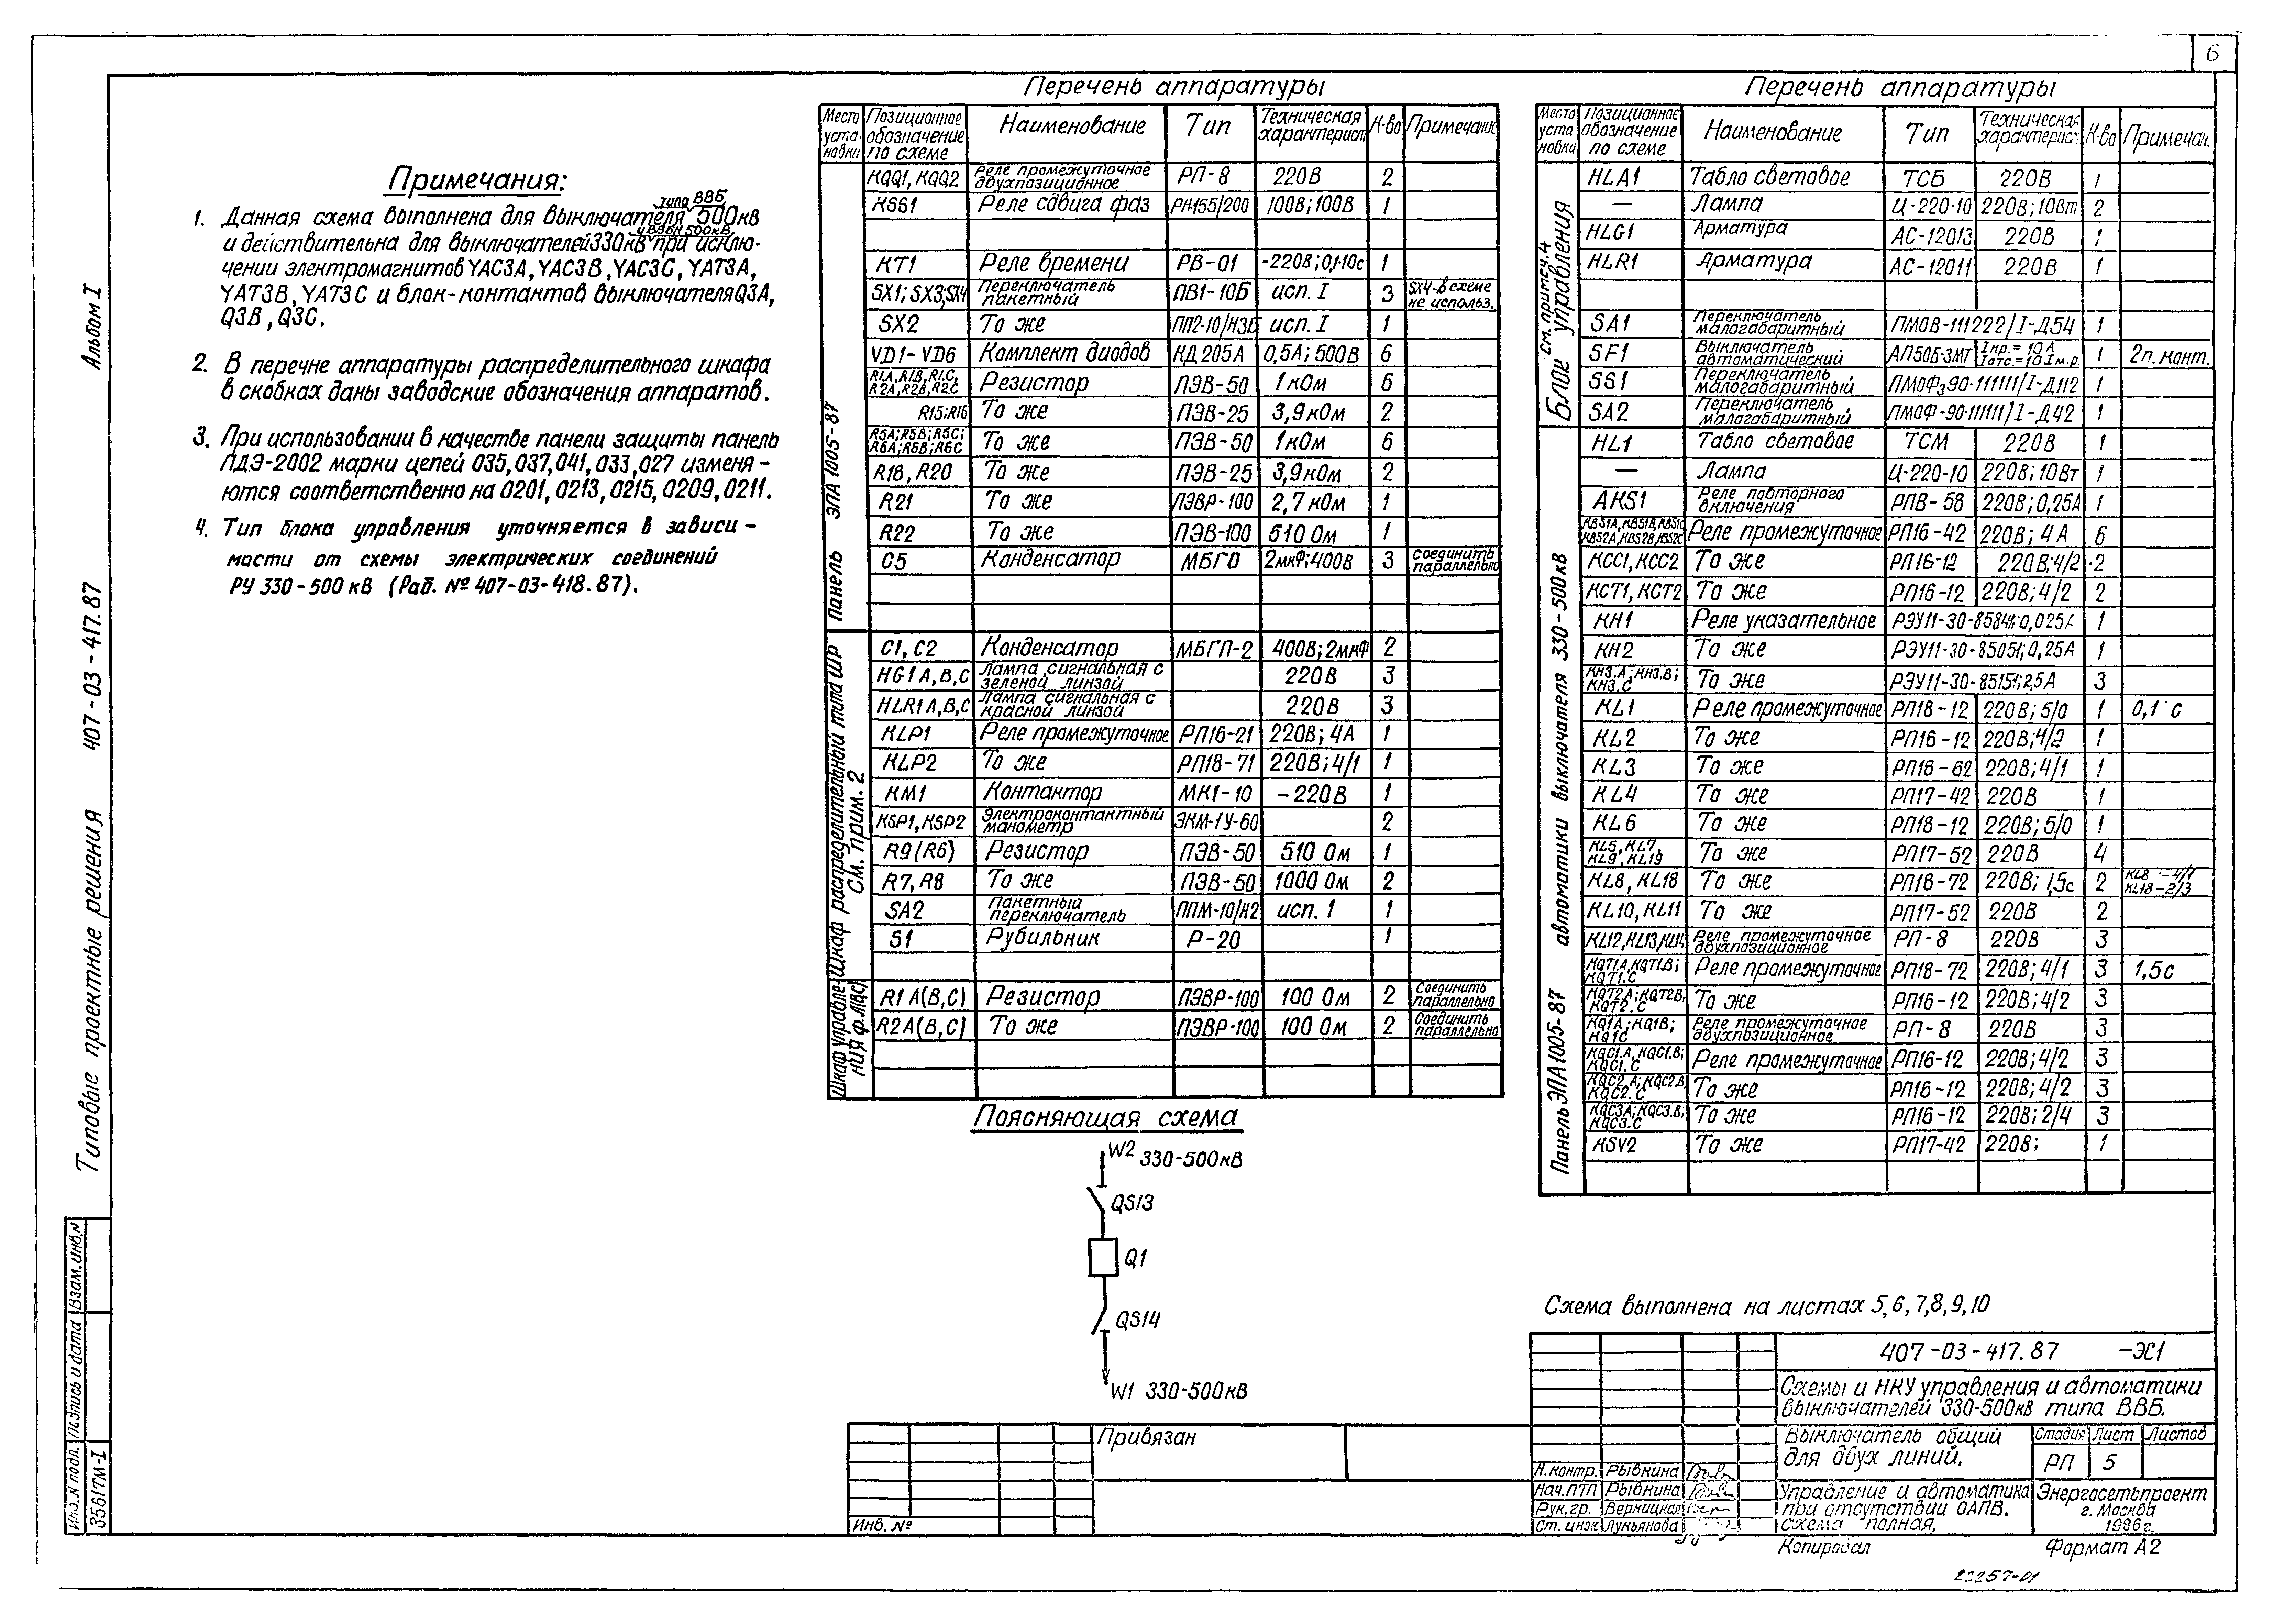 6
Альбом I
407-03-417.87
Типовые проектные решения
Примечания:
типа ВВБ
1. Данная схема выполнена для выключателя 500кВ
и ВВБК 500кВ
и действительна для выключателей 330кВ при исклю-
чении электромагнитов YAC3A, YAC3B, YAC3C, YAT3A,
YAT3B, YAT3C и блок-контактов выключателя Q3A,
Q3B, Q3C.
2. В перечне аппаратуры распределительного шкафа
в скобках даны заводские обозначения аппаратов.
3. При использовании в качестве панели защиты панель
ПДЭ-2002 марки цепей 035, 037, 041, 033, 027 изменя-
ются соответственно на 0201, 0213, 0215, 0209, 0211.
4. Тип блока управления уточняется в зависи-
мости от схемы электрических соединений
РУ 330-500 кВ (Раб. № 407-03-418.87).
Перечень аппаратуры
Место установки Позиционное обозначение по схеме Наименование Тип Техническая характерист. К-во Примечание
Панель ЭПА 1005-87
KQQ1, KQQ2 Реле промежуточное двухпозиционное РП-8 220В 2
KSS1 Реле сдвига фаз РН155/200 100В; 100В 1
KT1 Реле времени РВ-01 -220В; 0,1-10с 1
SX1; SX3; SX4 Переключатель пакетный ПВ1-10Б исп. I 3 SX4-в схеме не использ.
SX2 То же ПП2-10/Н3Б исп. I 1
VD1-VD6 Комплект диодов КД205А 0,5А; 500В 6
R1A, R1B, R1C, R2A, R2B, R2C Резистор ПЭВ-50 1кОм 6
R15; R16 То же ПЭВ-25 3,9кОм 2
R5A; R5B; R5C; R6A; R6B; R6C То же ПЭВ-50 1кОм 6
R18, R20 То же ПЭВ-25 3,9кОм 2
R21 То же ПЭВР-100 2,7 кОм 1
R22 То же ПЭВ-100 510 Ом 1
C5 Конденсатор МБГО 2мкФ; 400В 3 Соединить параллельно
Шкаф распределительный типа ШР См. прим. 2
C1, C2 Конденсатор МБГП-2 400В; 2мкФ 2
HG1 A, B, C Лампа сигнальная с зеленой линзой 220В 3
HLR1 A, B, C Лампа сигнальная с красной линзой 220В 3
KLP1 Реле промежуточное РП16-21 220В; 4А 1
KLP2 То же РП18-71 220В; 4/1 1
KM1 Контактор МК1-10 -220В 1
KSP1, KSP2 Электроконтактный манометр ЭКМ-1У-60 2
R9 (R6) Резистор ПЭВ-50 510 Ом 1
R7, R8 То же ПЭВ-50 1000 Ом 2
SA2 Пакетный переключатель ППМ-10/Н2 исп. 1 1
S1 Рубильник Р-20 1
Шкаф управления ф.А(В,С)
R1 A(B,C) Резистор ПЭВР-100 100 Ом 2 Соединить параллельно
R2A(B,C) То же ПЭВР-100 100 Ом 2 Соединить параллельно
Поясняющая схема
W2 330-500кВ
QS13
Q1
QS14
W1 330-500кВ
Перечень аппаратуры
Место установки Позиционное обозначение по схеме Наименование Тип Техническая характерист. К-во Примечан.
Блок управления см. примеч. 4
HLA1 Табло световое ТСБ 220В 1
— Лампа Ц-220-10 220В; 10Вт 2
HLG1 Арматура АС-12013 220В 1
HLR1 Арматура АС-12011 220В 1
SA1 Переключатель малогабаритный ПМОВ-111222/I-Д54 1
SF1 Выключатель автоматический АП50Б-3МТ Iнр.=10А Iотс.=10Iн.р. 1 2п. конт.
SS1 Переключатель малогабаритный ПМОФ390-111111/I-Д112 1
SA2 Переключатель малогабаритный ПМОФ-90-111111/I-Д42 1
Панель ЭПА1005-87 автоматики выключателя 330-500кВ
HL1 Табло световое ТСМ 220В 1
— Лампа Ц-220-10 220В; 10Вт 1
AKS1 Реле повторного включения РПВ-58 220В; 0,25А 1
KBS1A, KBS1B, KBS1C KBS2A, KBS2B, KBS2C Реле промежуточное РП16-42 220В; 4А 6
KCC1, KCC2 То же РП16-12 220В; 4/2 2
KCT1, KCT2 То же РП16-12 220В; 4/2 2
KH1 Реле указательное РЭУ11-30-85841; 0,025А 1
KH2 То же РЭУ11-30-85051; 0,25А 1
KH3.A; KH3.B; KH3.C То же РЭУ11-30-85151; 2,5А 3
KL1 Реле промежуточное РП18-12 220В; 5/0 1 0,1 с
KL2 То же РП16-12 220В; 4/2 1
KL3 То же РП18-62 220В; 4/1 1
KL4 То же РП17-42 220В 1
KL6 То же РП18-12 220В; 5/0 1
KL5, KL7, KL9, KL19 То же РП17-52 220В 4
KL8, KL18 То же РП18-72 220В; 1,5с 2 KL8 -4/1 KL18-2/3
KL10, KL11 То же РП17-52 220В 2
KL12, KL13, KL14 Реле промежуточное двухпозиционное РП-8 220В 3
KQT1A, KQT1.B; KQT1.C Реле промежуточное РП18-72 220В; 4/1 3 1,5с
KQT2A; KQT2B, KQT2.C То же РП16-12 220В; 4/2 3
KQ1A; KQ1B; KQ1C Реле промежуточное двухпозиционное РП-8 220В 3
KQC1.A, KQC1.B; KQC1.C Реле промежуточное РП16-12 220В; 4/2 3
KQC2.A; KQC2.B, KQC2.C То же РП16-12 220В; 4/2 3
KQC3A; KQC3.B; KQC3.C То же РП16-12 220В; 2/4 3
KSV2 То же РП17-42 220В; 1
Схема выполнена на листах 5, 6, 7, 8, 9, 10
407-03-417.87 -ЭС1
Схемы и НКУ управления и автоматики
выключателей 330-500кВ типа ВВБ.
Выключатель общий
для двух линий.
Стадия Лист Листов
РП 5
Управление и автоматика
при отсутствии ОАПВ.
Схема полная.
Энергосетьпроект
г. Москва
1986г.
Н.контр. Рыбкина
Нач.ПТП Рыбкина
Рук.гр. Верницкая
Ст. инж Лукьянова
Привязан
Инв. №
Копировал
Формат А2
22257-01
Инв.N подл. Подпись и дата Взам.инв.N
3561Тм-I